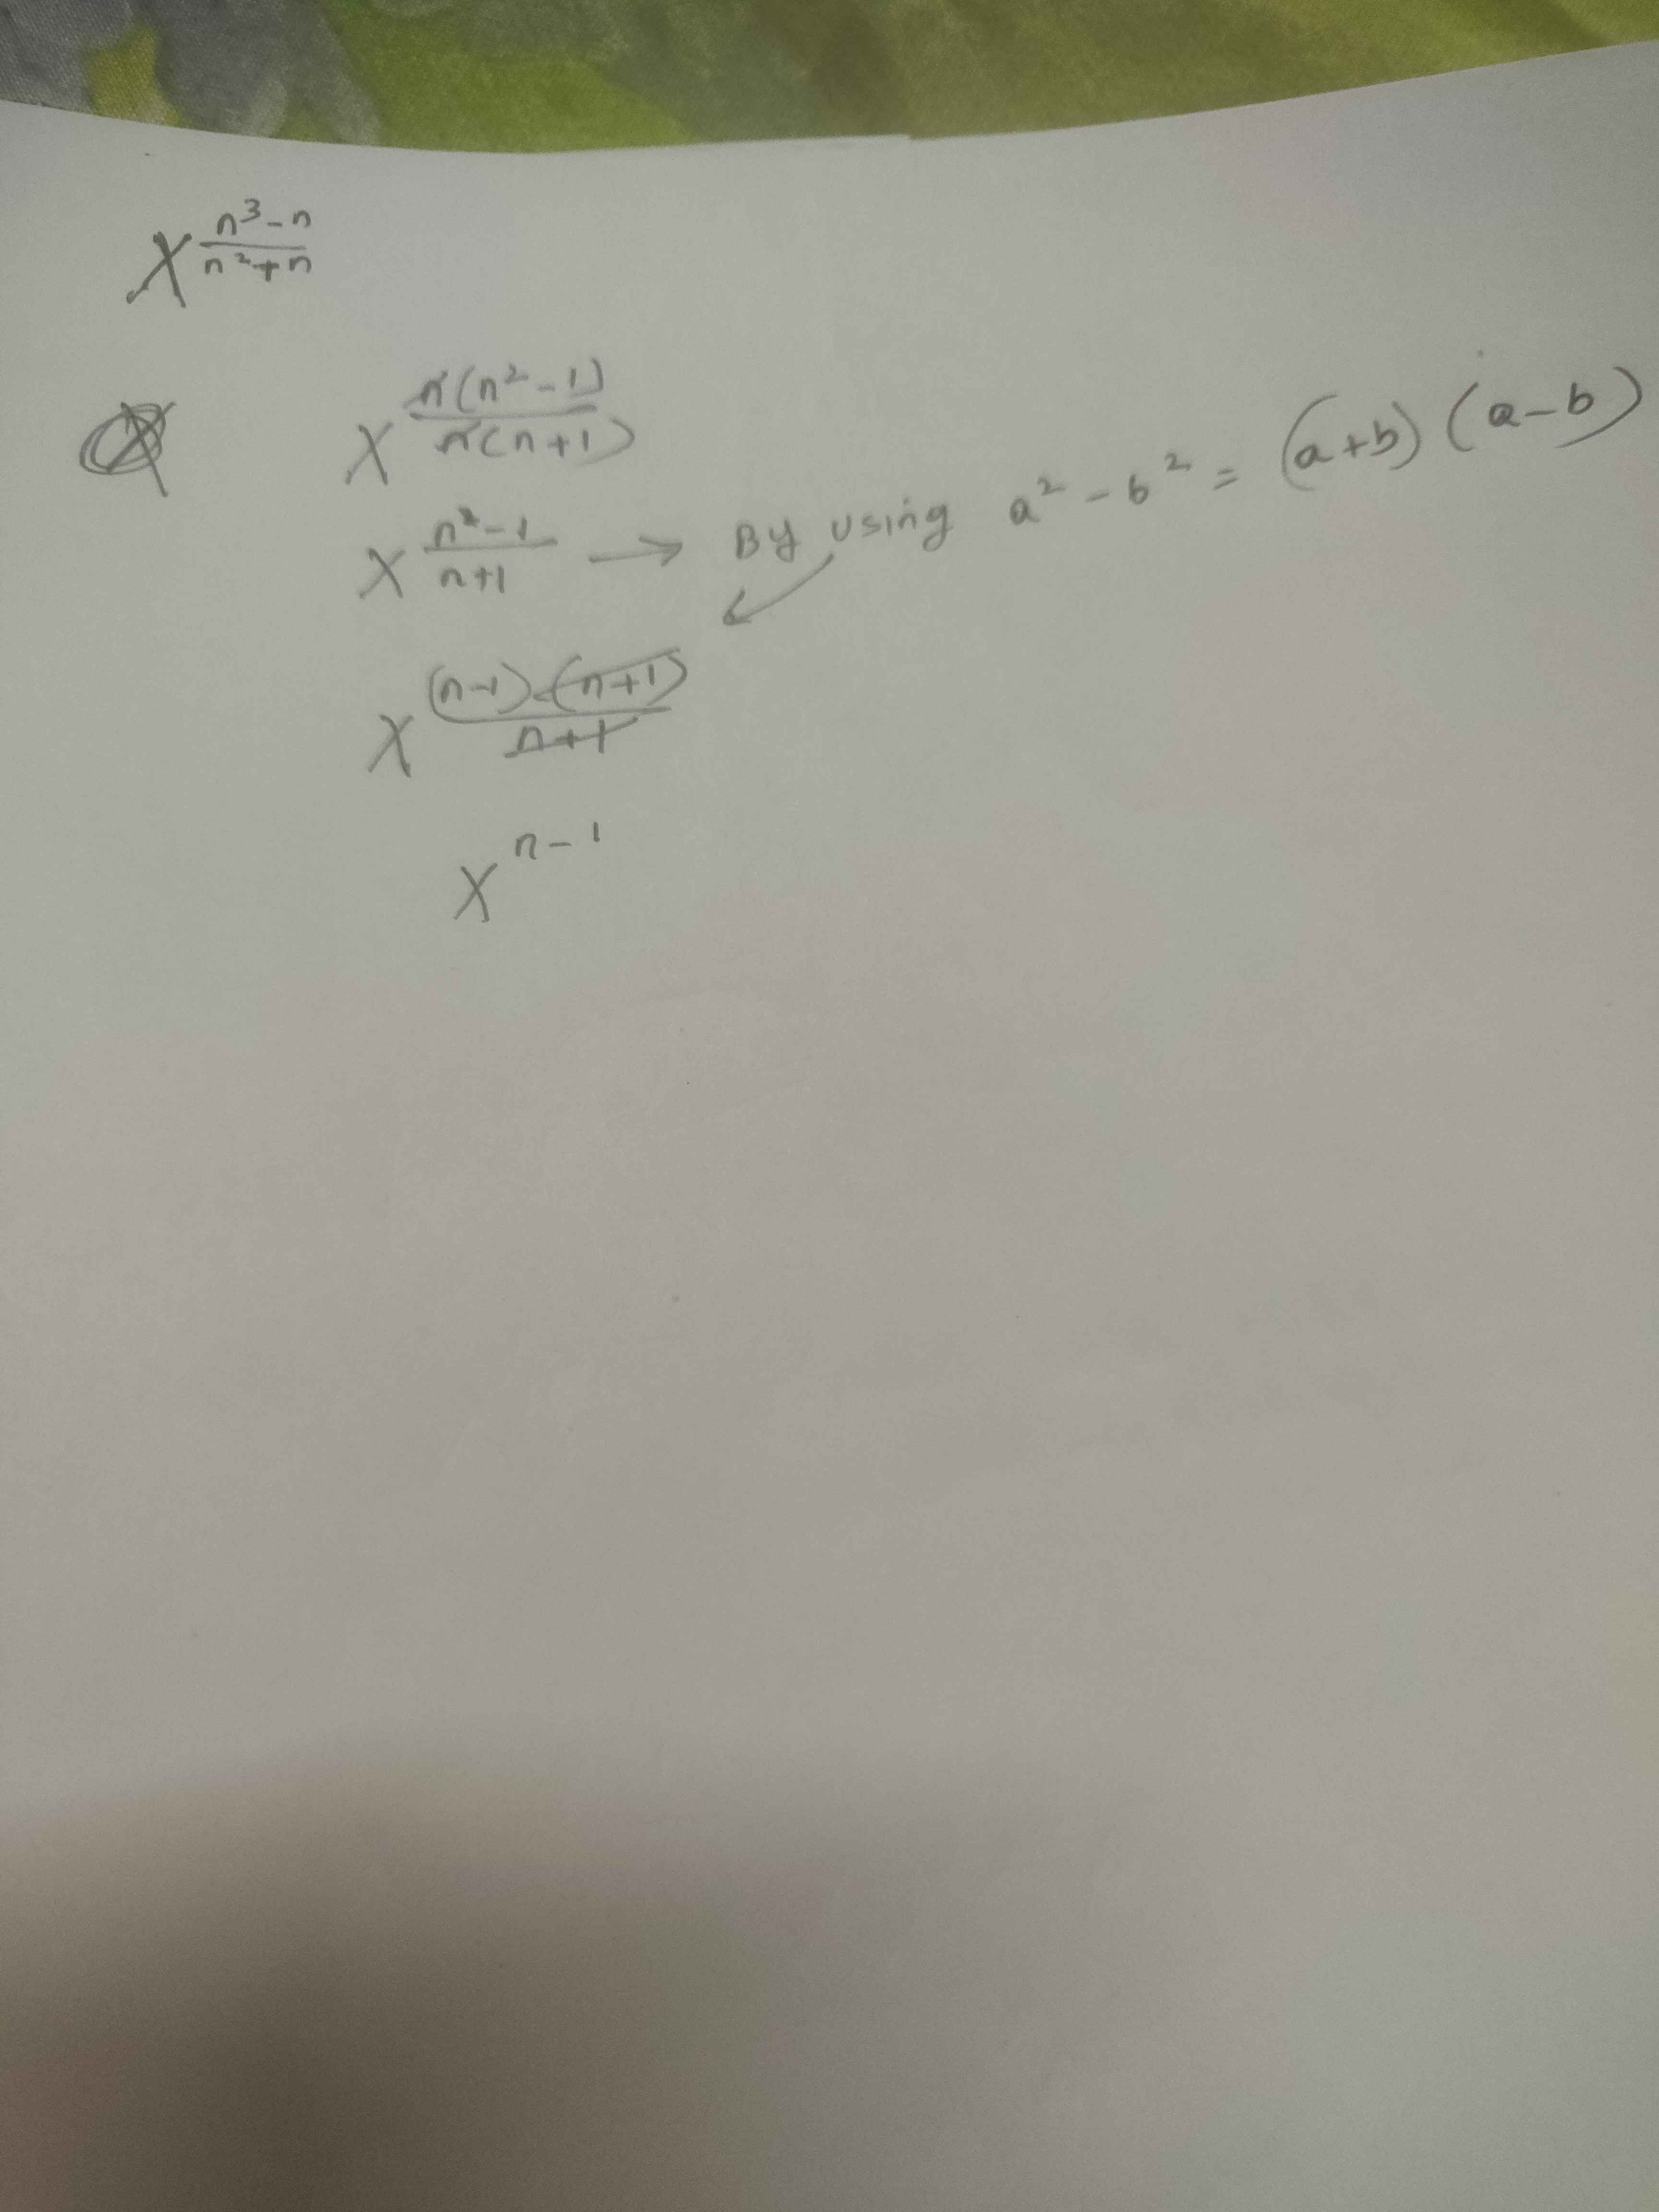 X^((n³-n)/(n²+n))
X^((n(n²-1))/(n(n+1)))
X^((n²-1)/(n+1)) → By using a² - b² = (a+b) (a-b)
X^(((n-1).(n+1))/(n+1))
X^(n-1)